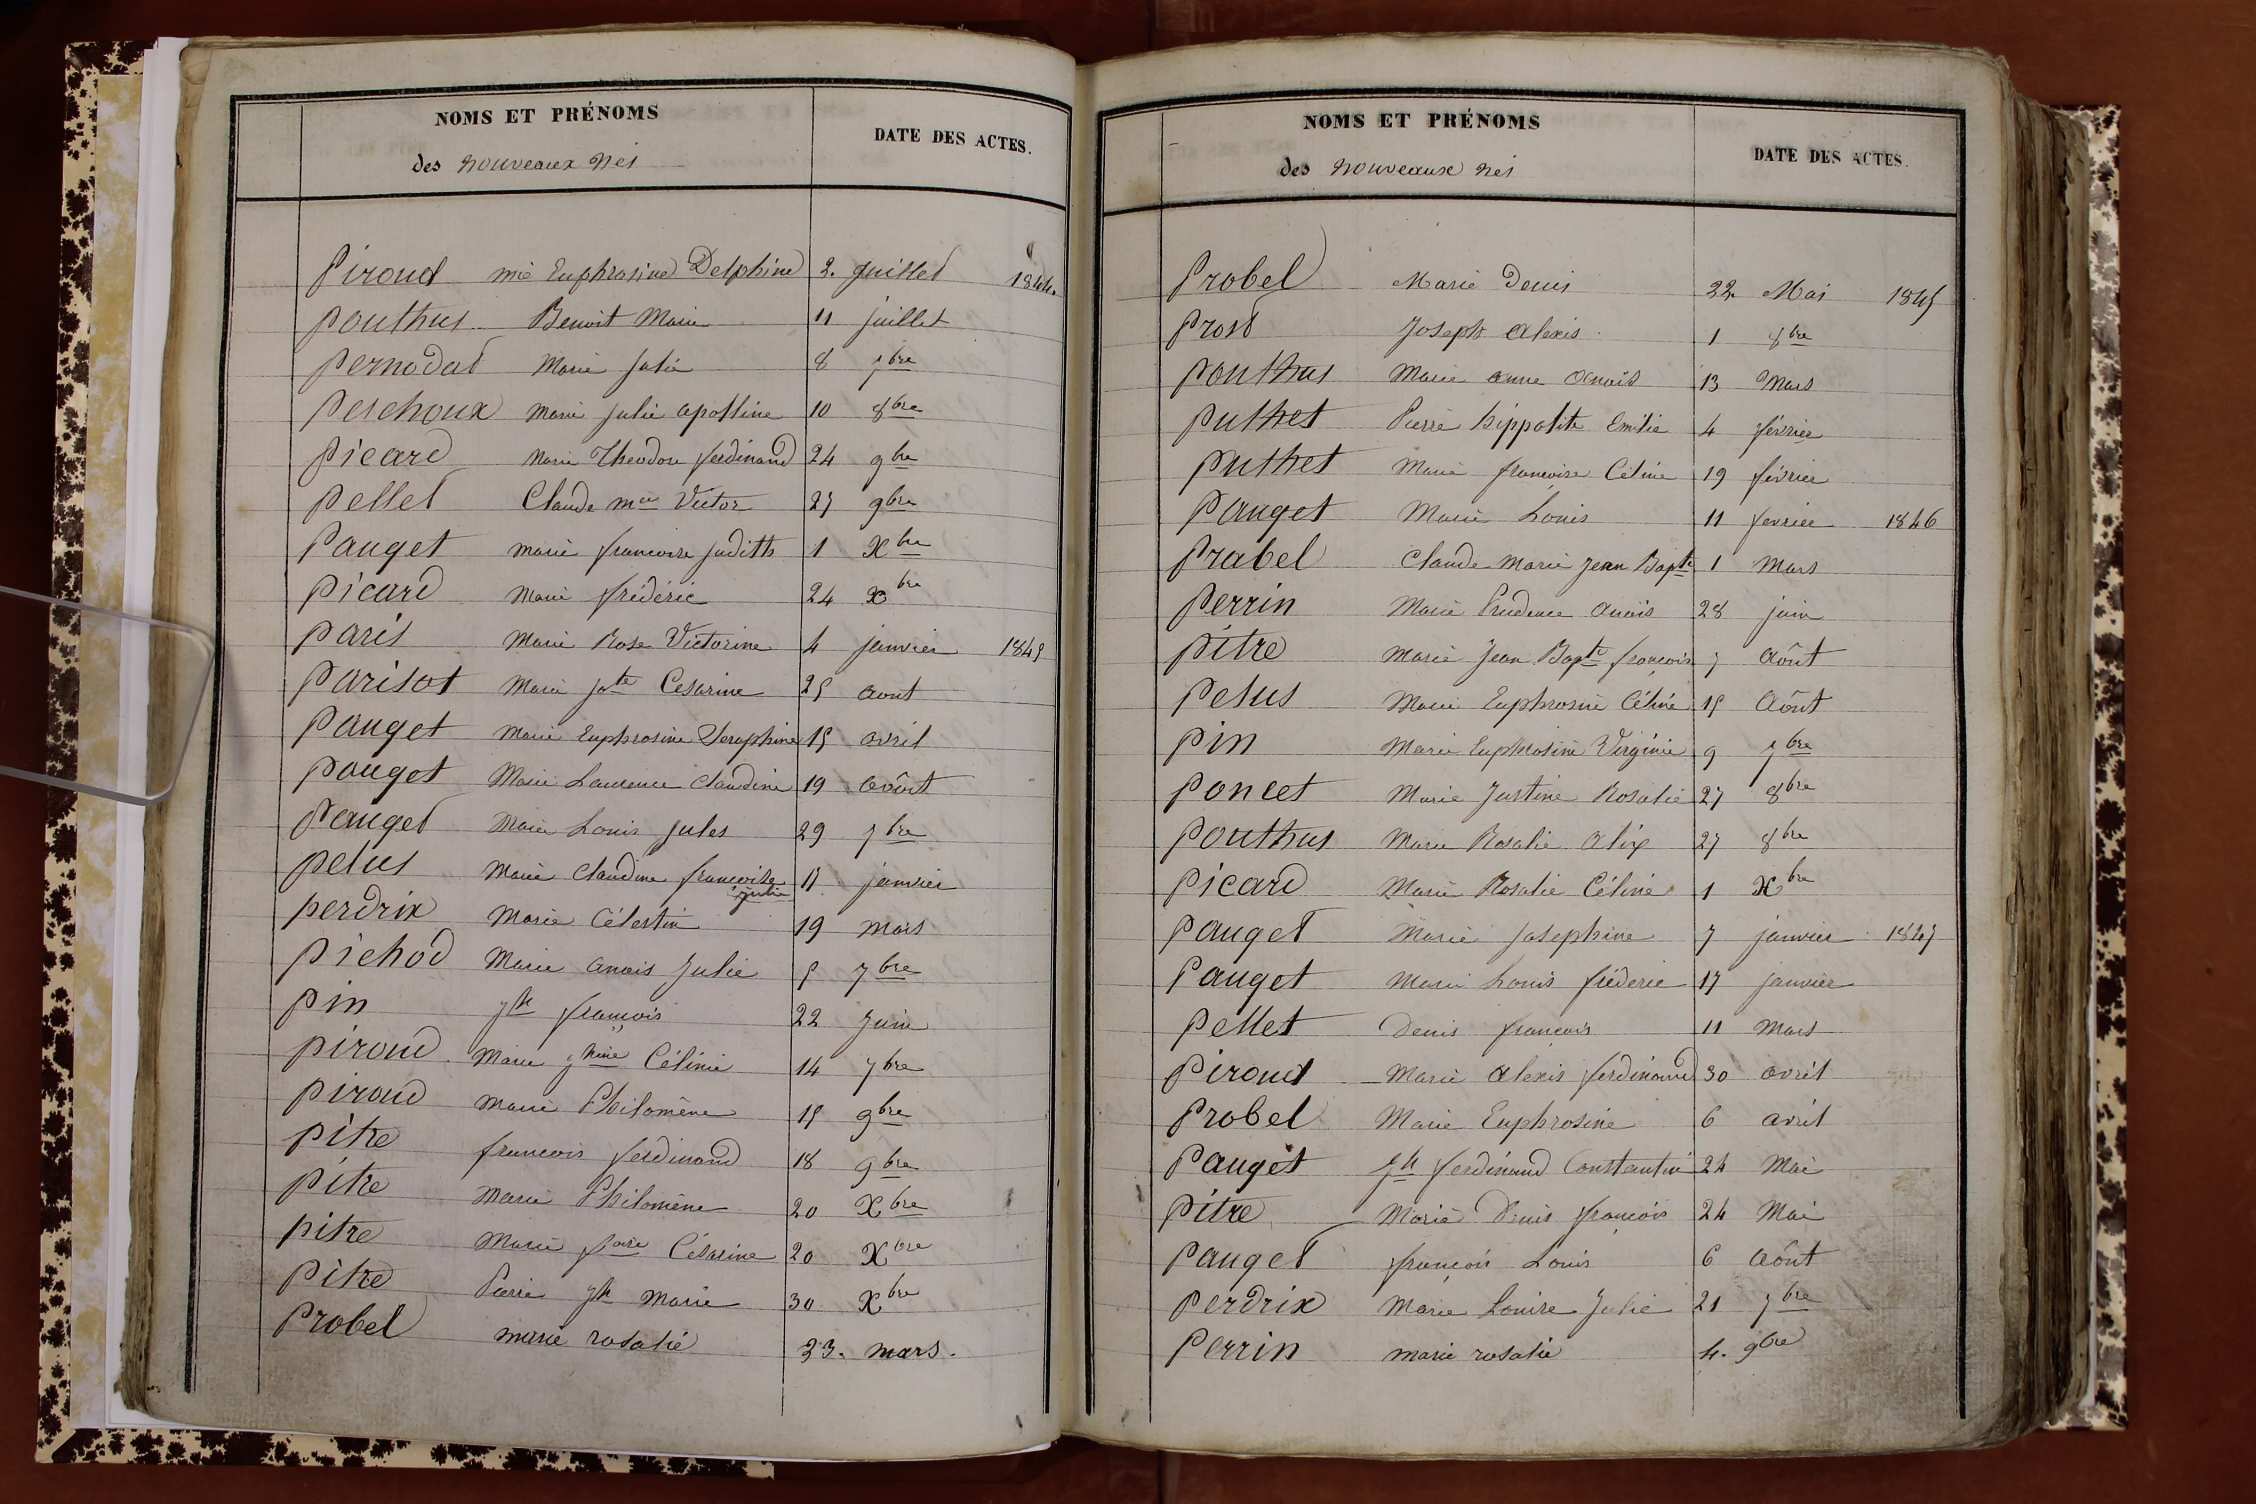 NOMS ET PRÉNOMS
des nouveaux nés
DATE DES ACTES.
Piroud mie Euphrasine Delphine 2. juillet 1844.
Pouthus Benoit Marie 11 juillet
Pernodat Marie Julie 8 7bre
Perchoux Marie Julie Apolline 10 8bre
Picard Marie Theodore ferdinand 24 9bre
Pellet Claude mie Victor 27 9bre
Pauget marie francoise Judith 1 Xbre
Picard Marie frédéric 24 Xbre
Paris Marie Rose Victorine 4 janvier 1845
Parisot Marie Cesarine 25 aout
Pauget Marie Euphrosine Seraphine 15 avril
Pauget Marie Laurence Claudine 19 Août
Pauget Marie Louis Jules 29 7bre
Petus Marie Claudine francoise 11 janvier
Julie
Perdrix Marie Célestin 19 mars
Pichod Marie Anais Julie 5 7bre
Pin jh françois 22 Juin
Piroud Marie jhine Célinie 14 7bre
Piroud Marie Philomène 15 9bre
Pitre francois ferdinand 18 9bre
Pitre Marie Philomène 20 Xbre
Pitre Marie Césarine 20 Xbre
Pitre Pierre jh Marie 30 Xbre
Probel marie rosalie 23. mars.
NOMS ET PRÉNOMS
des nouveaux nés
DATE DES ACTES.
Probel Marie Denis 22. Mai 1845
Prost Joseph Alexis 1 8bre
Pouthus Marie Anne Anais 13 Mars
Puthet Pierre hippolite Emilie 4 février
Puthet Marie françoise Céline 19 février
Pauget Marie Louis 11 fevrier 1846
Prabel Claude Marie Jean Bapte 1 Mars
Perrin Marie Prudence Anaïs 28 juin
Pitre Marie Jean Bapte françois 7 Aôut
Petus Marie Euphrosine Céline 15 Aôut
Pin Marie Euphrosine Virginie 9 7bre
Poncet Marie Justine Rosalie 27 8bre
Pouthus Marie Rosalie Alix 27 8bre
Picard Marie Rosalie Céline 1 Xbre
Pauget Marie Josephine 7 janvier 1847
Pauget Marie Louis fréderic 17 janvier
Pellet Denis françois 11 Mars
Piroud Marie Alexis ferdinand 30 avril
Probel Marie Euphrosine 6 avril
Pauget jh ferdinand Constantin 24 Mai
Pitre Marie Denis françois 24 Mai
Pauget françois Louis 6 Aôut
Perdrix Marie Louise Julie 21 7bre
Perrin marie rosalie 4. 9bre